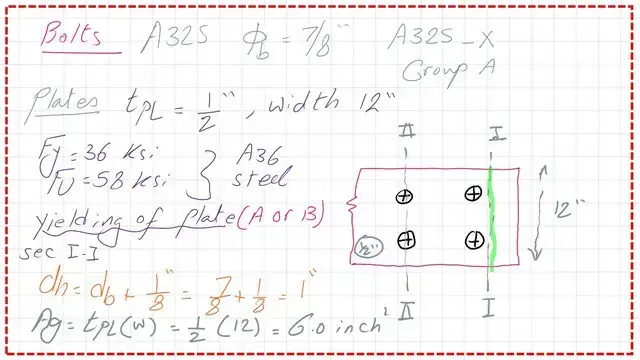 Bolts A325 ϕb = 7/8" A325-X
Group A
Plates tPL = 1/2", width 12"
Fy=36 Ksi } A36
FU=58 Ksi } steel
yielding of plate (A or B)
sec I-I
dh = db + 1/8" = 7/8 + 1/8 = 1"
Ag = tPL(w) = 1/2 (12) = 6.0 inch²
II I
1/2"
12"
II I